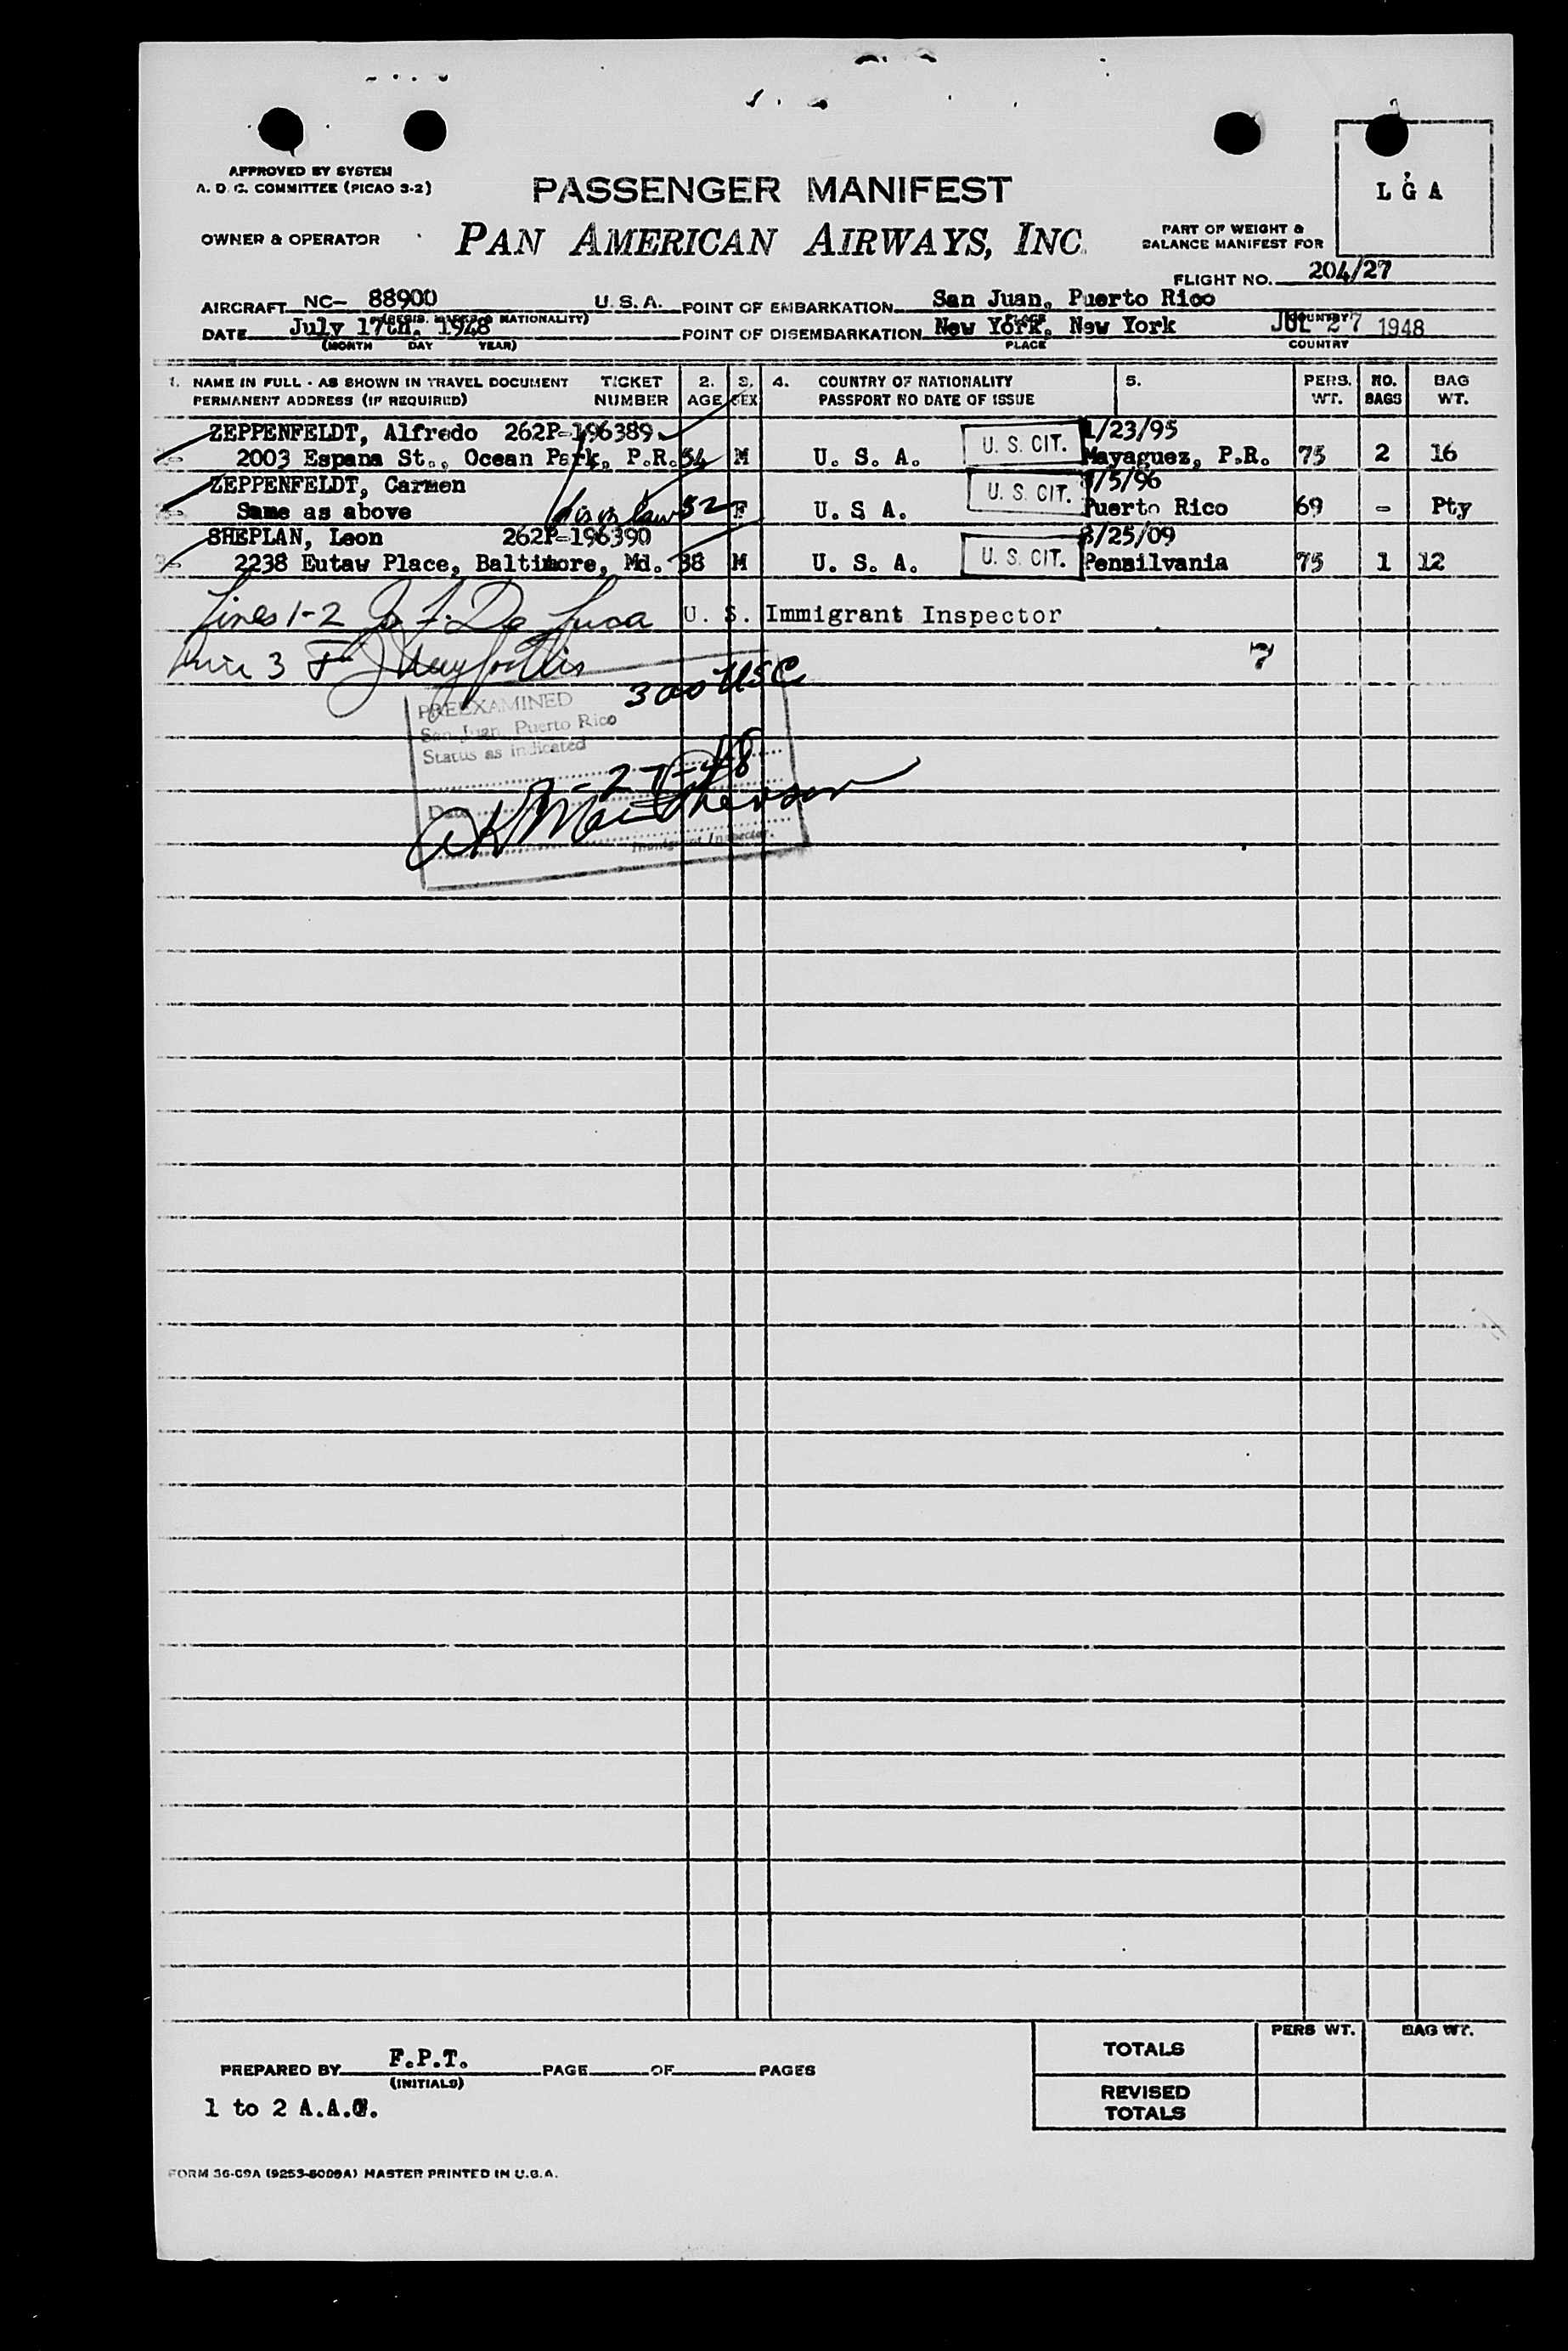 APPROVED BY SYSTEM
A. D. C. COMMITTEE (PICAO 3-2)
PASSENGER MANIFEST
L G A
OWNER & OPERATOR
PAN AMERICAN AIRWAYS, INC.
PART OF WEIGHT &
BALANCE MANIFEST FOR
FLIGHT NO. 204/27
AIRCRAFT NC- 88900 U. S. A. POINT OF EMBARKATION San Juan, Puerto Rico
(REGIS. MARKS & NATIONALITY) PLACE COUNTRY
DATE July 17th, 1948 POINT OF DISEMBARKATION New York, New York JUL 27 1948
(MONTH DAY YEAR) PLACE COUNTRY
1. NAME IN FULL - AS SHOWN IN TRAVEL DOCUMENT TICKET 2. 3. 4. COUNTRY OF NATIONALITY 5. PERS. NO. BAG
PERMANENT ADDRESS (IF REQUIRED) NUMBER AGE SEX PASSPORT NO DATE OF ISSUE WT. BAGS WT.
ZEPPENFELDT, Alfredo 262P-196389 1/23/95
2003 Espana St., Ocean Park, P.R. 54 M U. S. A. U. S. CIT. Mayaguez, P.R. 75 2 16
ZEPPENFELDT, Carmen /5/96
Same as above 52 F U. S A. U. S. CIT. Puerto Rico 69 - Pty
SHEPLAN, Leon 262P-196390 /25/09
2238 Eutaw Place, Baltimore, Md. 38 M U. S. A. U. S. CIT. Pennsilvania 75 1 12
Lines 1-2 F. De Luca U. S. Immigrant Inspector
Line 3
7
300 USC
PREEXAMINED
San Juan, Puerto Rico
Status as indicated
Date 7-27-48
Immigrant Inspector.
TOTALS PERS WT. BAG WT.
PREPARED BY F.P.T. PAGE OF PAGES
(INITIALS)
REVISED
TOTALS
1 to 2 A.A.G.
FORM 36-09A (9253-8009A) MASTER PRINTED IN U.S.A.